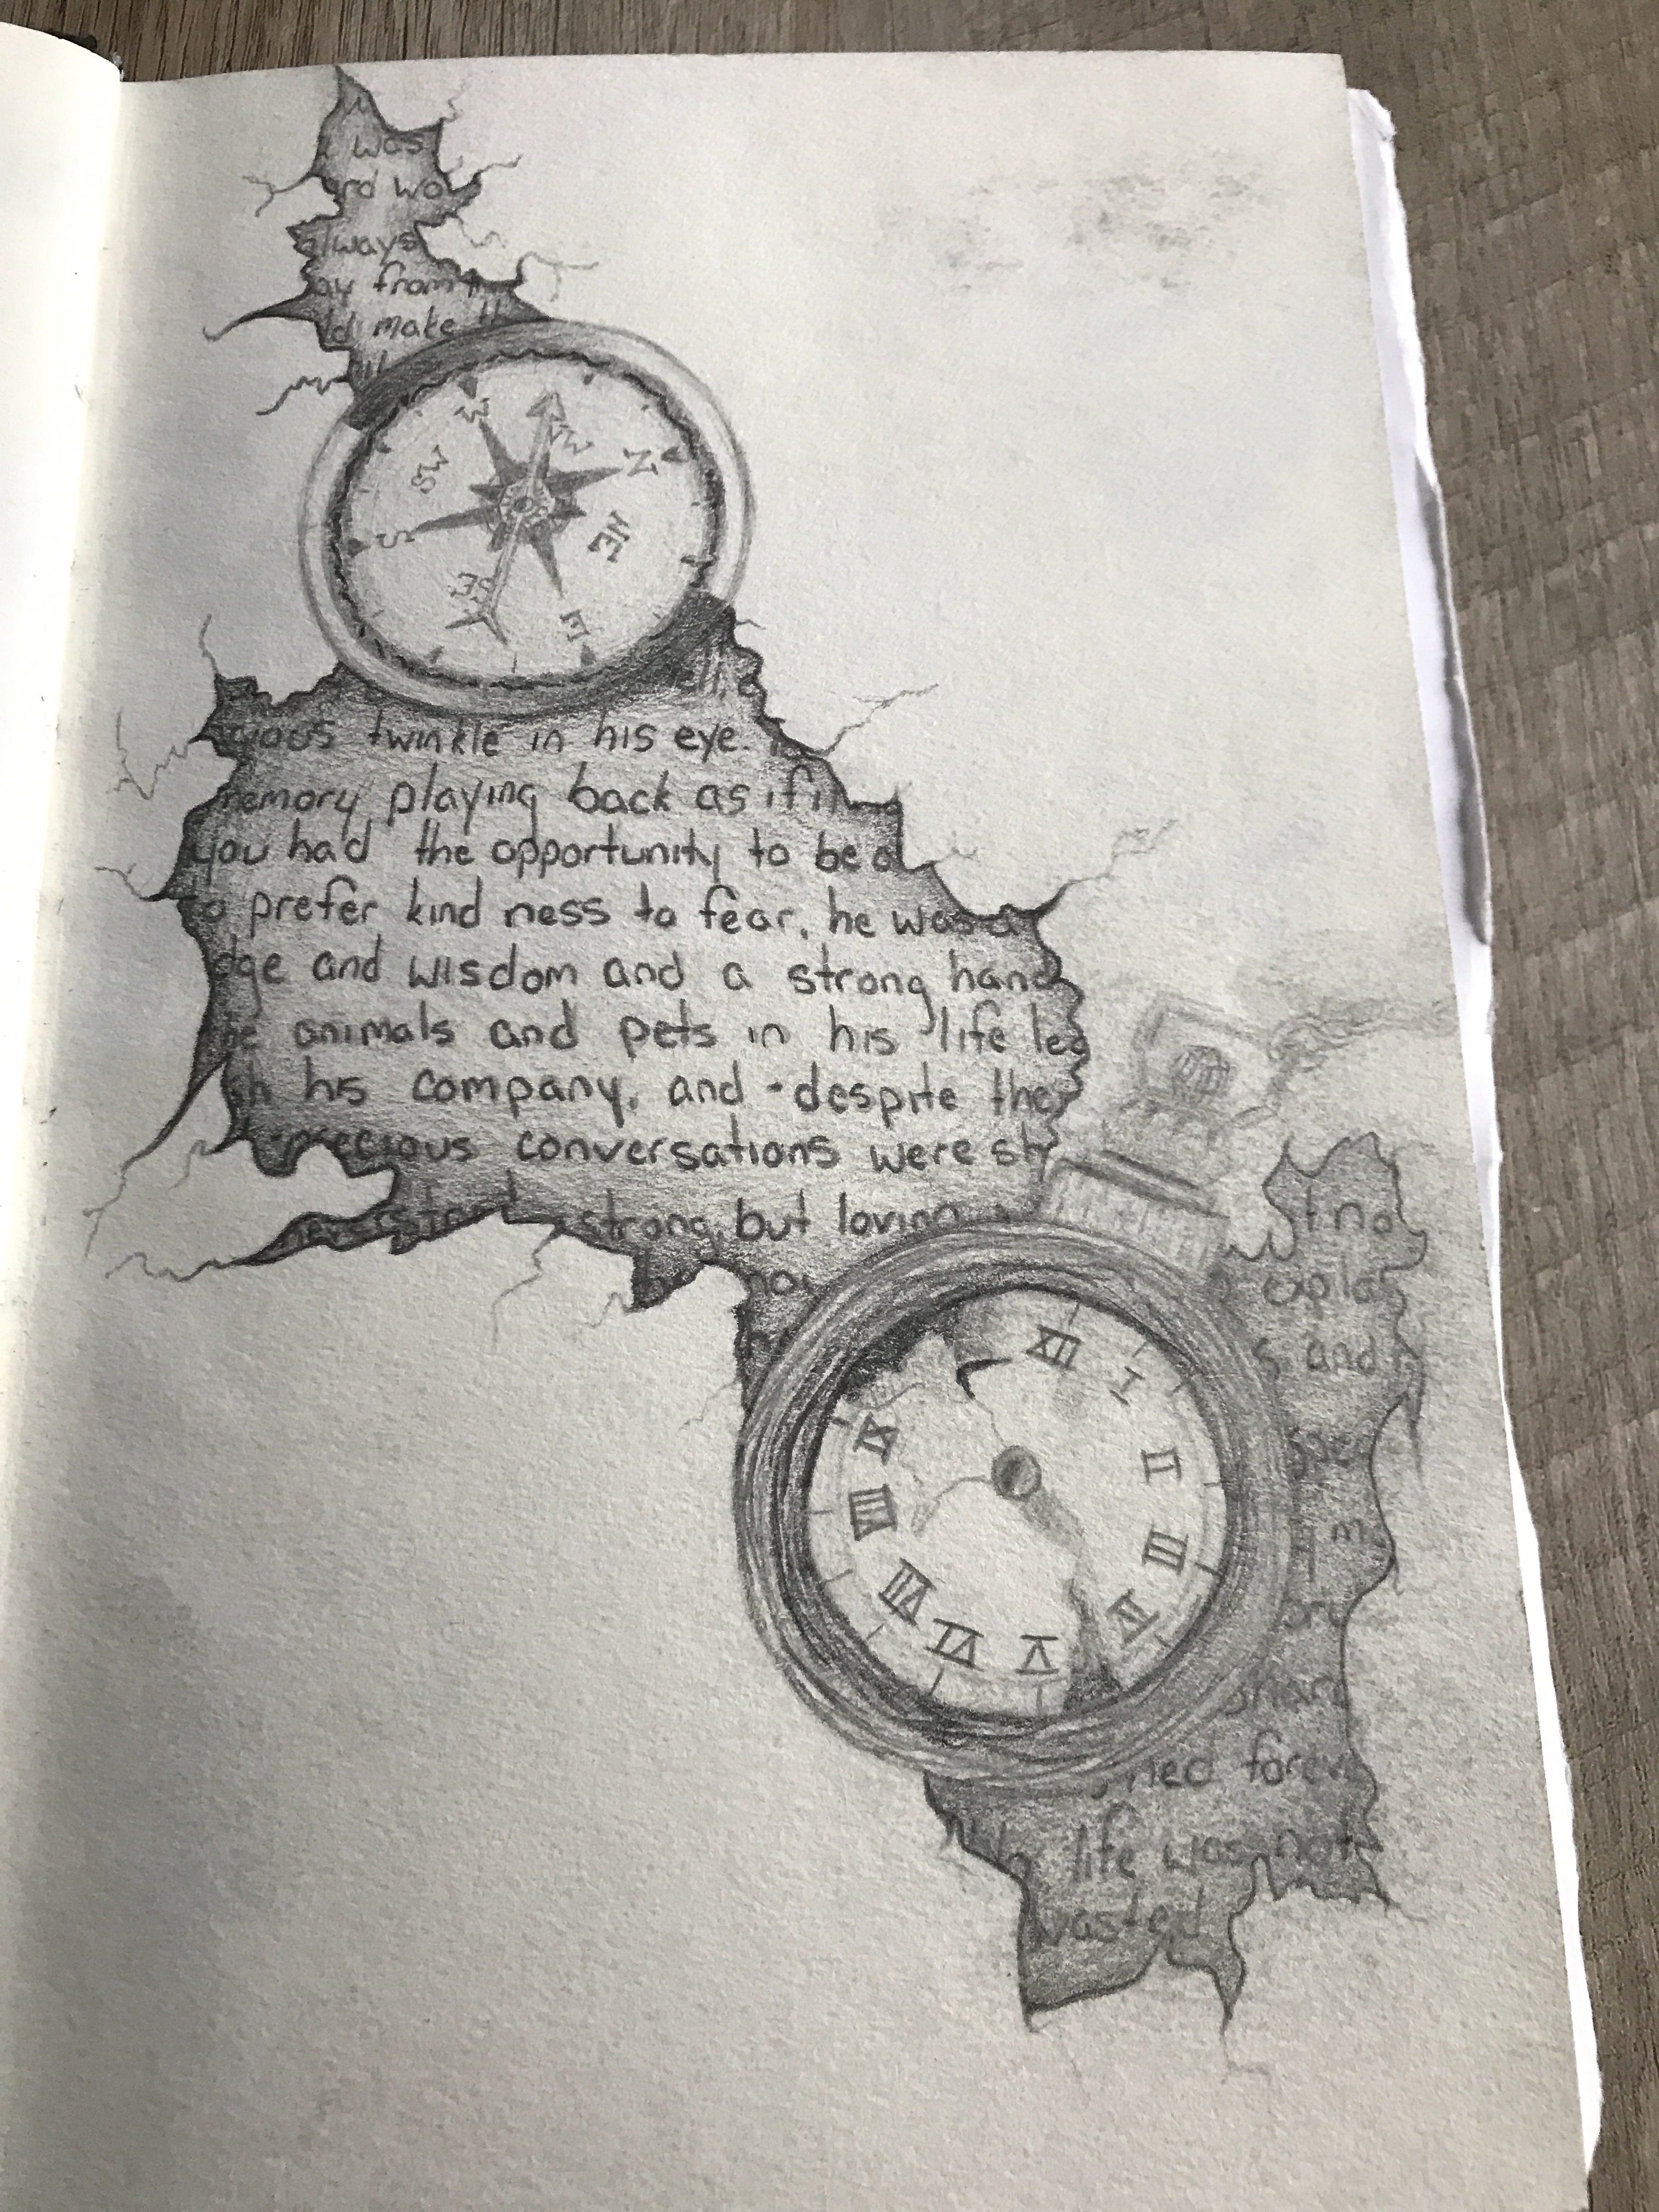 was
wo
always
from
make
W
NW
N
SW
NE
S
SE
E
twinkle in his eye.
memory playing back as if i
you had the opportunity to be a
to prefer kind ness to fear, he was a
dge and wisdom and a strong hand
he animals and pets in his life lea
sh his company, and - despite the
precious conversations were st
strong, but loving
st no
explai
s and
XII
I
II
IX
spec
VIII
III
m
VII
IV
ory
VI
V
ned forev
life was not
wasted